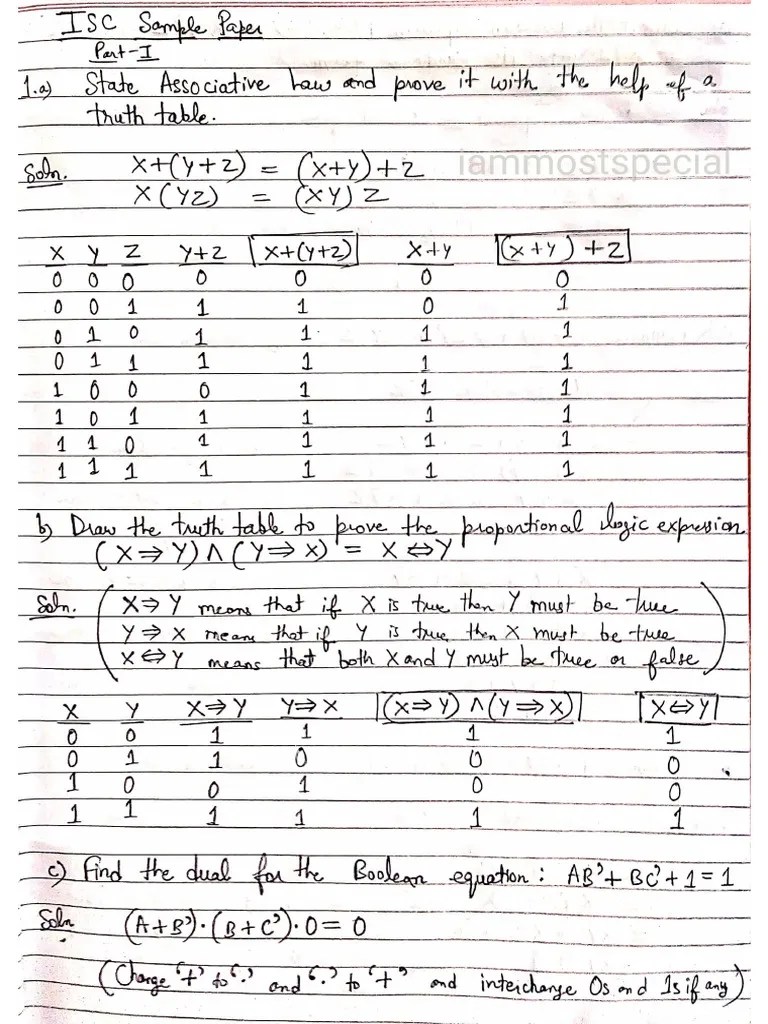 ISC Sample Paper
Part-I
1.a) State Associative Law and prove it with the help of a
truth table.
Soln. X+(Y+Z) = (X+Y)+Z
iammostspecial
X(YZ) = (XY)Z
X Y Z Y+Z X+(Y+Z) X+Y (X+Y)+Z
0 0 0 0 0 0 0
0 0 1 1 1 0 1
0 1 0 1 1 1 1
0 1 1 1 1 1 1
1 0 0 0 1 1 1
1 0 1 1 1 1 1
1 1 0 1 1 1 1
1 1 1 1 1 1 1
b) Draw the truth table to prove the proportional logic expression
(X⇒Y)∧(Y⇒X) = X⇔Y
Soln. (X⇒Y means that if X is true then Y must be true
Y⇒X means that if Y is true, then X must be true
X⇔Y means that both X and Y must be true or false)
X Y X⇒Y Y⇒X (X⇒Y)∧(Y⇒X) X⇔Y
0 0 1 1 1 1
0 1 1 0 0 0
1 0 0 1 0 0
1 1 1 1 1 1
c) Find the dual for the Boolean equation: AB'+BC'+1=1
Soln (A+B')·(B+C')·0=0
(Change '+' to '·' and '·' to '+' and interchange 0s and 1s if any)